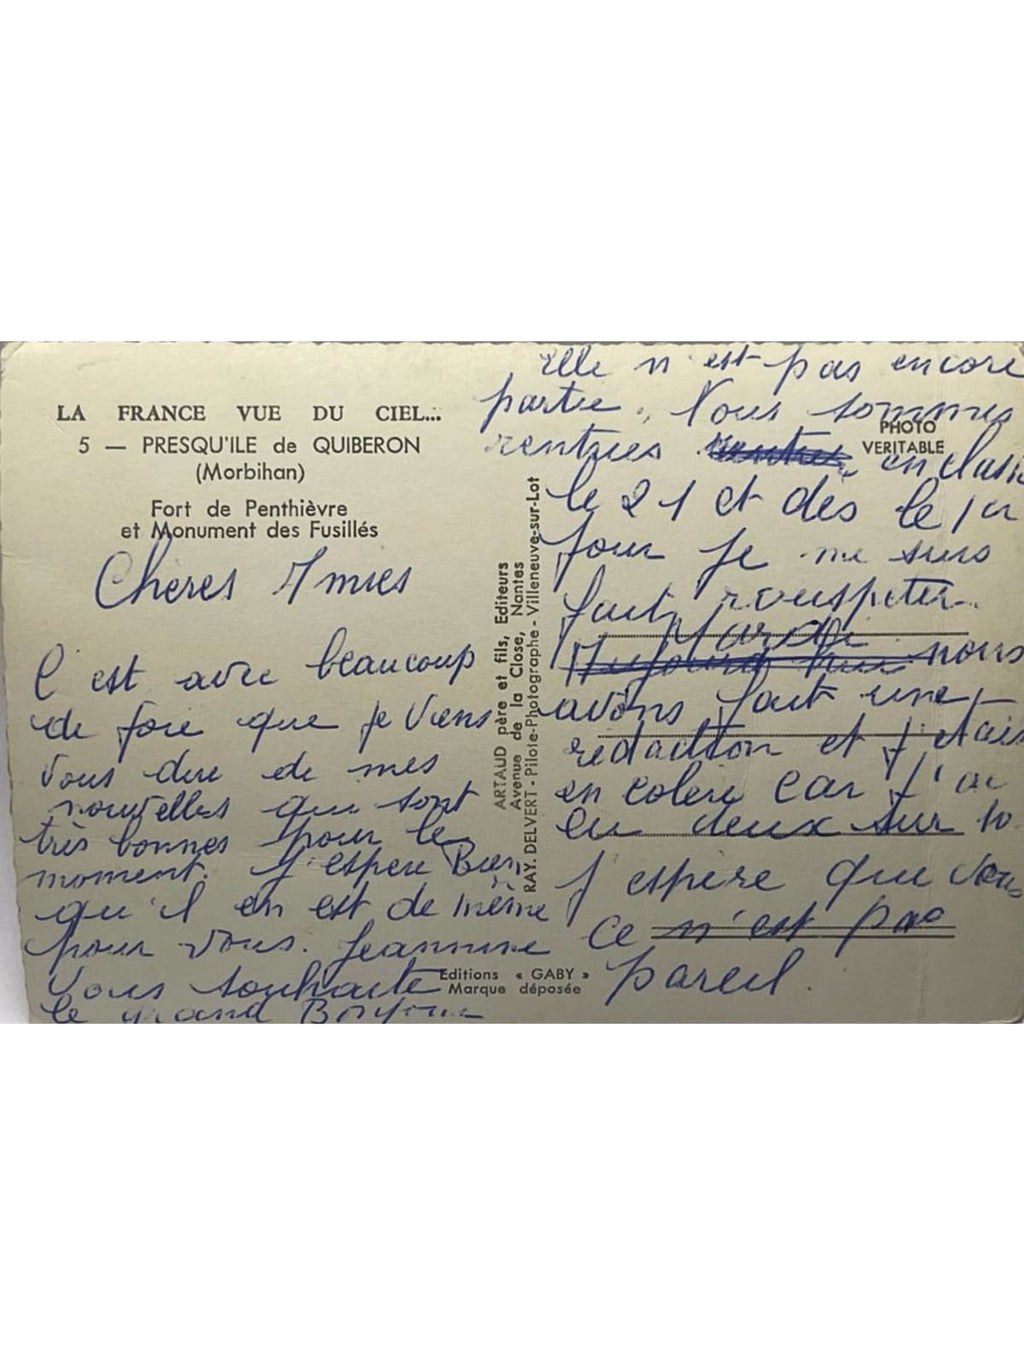 LA FRANCE VUE DU CIEL...
5 — PRESQU'ILE de QUIBERON
(Morbihan)
Fort de Penthièvre
et Monument des Fusillés
Chères Amies
C'est avec beaucoup
de joie que je viens
vous dire de mes
nouvelles qui sont
très bonnes pour le
moment. J'espère Bien
qu'il en est de même
pour vous. Jeannine
vous souhaite
le grand Bonjour
ARTAUD père et fils, Editeurs
Avenue de la Close, Nantes
RAY. DELVERT - Pilote-Photographe - Villeneuve-sur-Lot
Editions « GABY »
Marque déposée
PHOTO
VERITABLE
Elle n'est pas encore
partie. Nous sommes
rentrées en classe
le 21 et dès le 1er
jour je me suis
fait rouspeter.
Mardi
nous
avons fait une
rédaction et j'étais
en colère car j'ai
eu deux sur 10.
J'espère que vous
ce n'est pas
pareil.